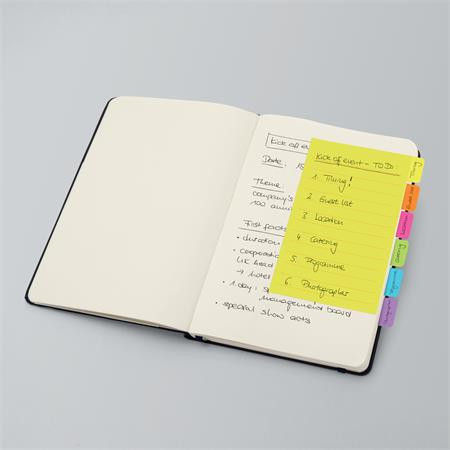 Kick off eve
Date: 15
Theme:
company's
100 anni
First facts
• duration
• cooperatio
UK head
→ hotel
• 1.day: s
management board
• special show acts
Kick of event - TO DO:
1. Timing!
2. Guest list
3. Location
4 Catering
5. Programme
6. Photographer
Timing
Guest list
Location
Catering